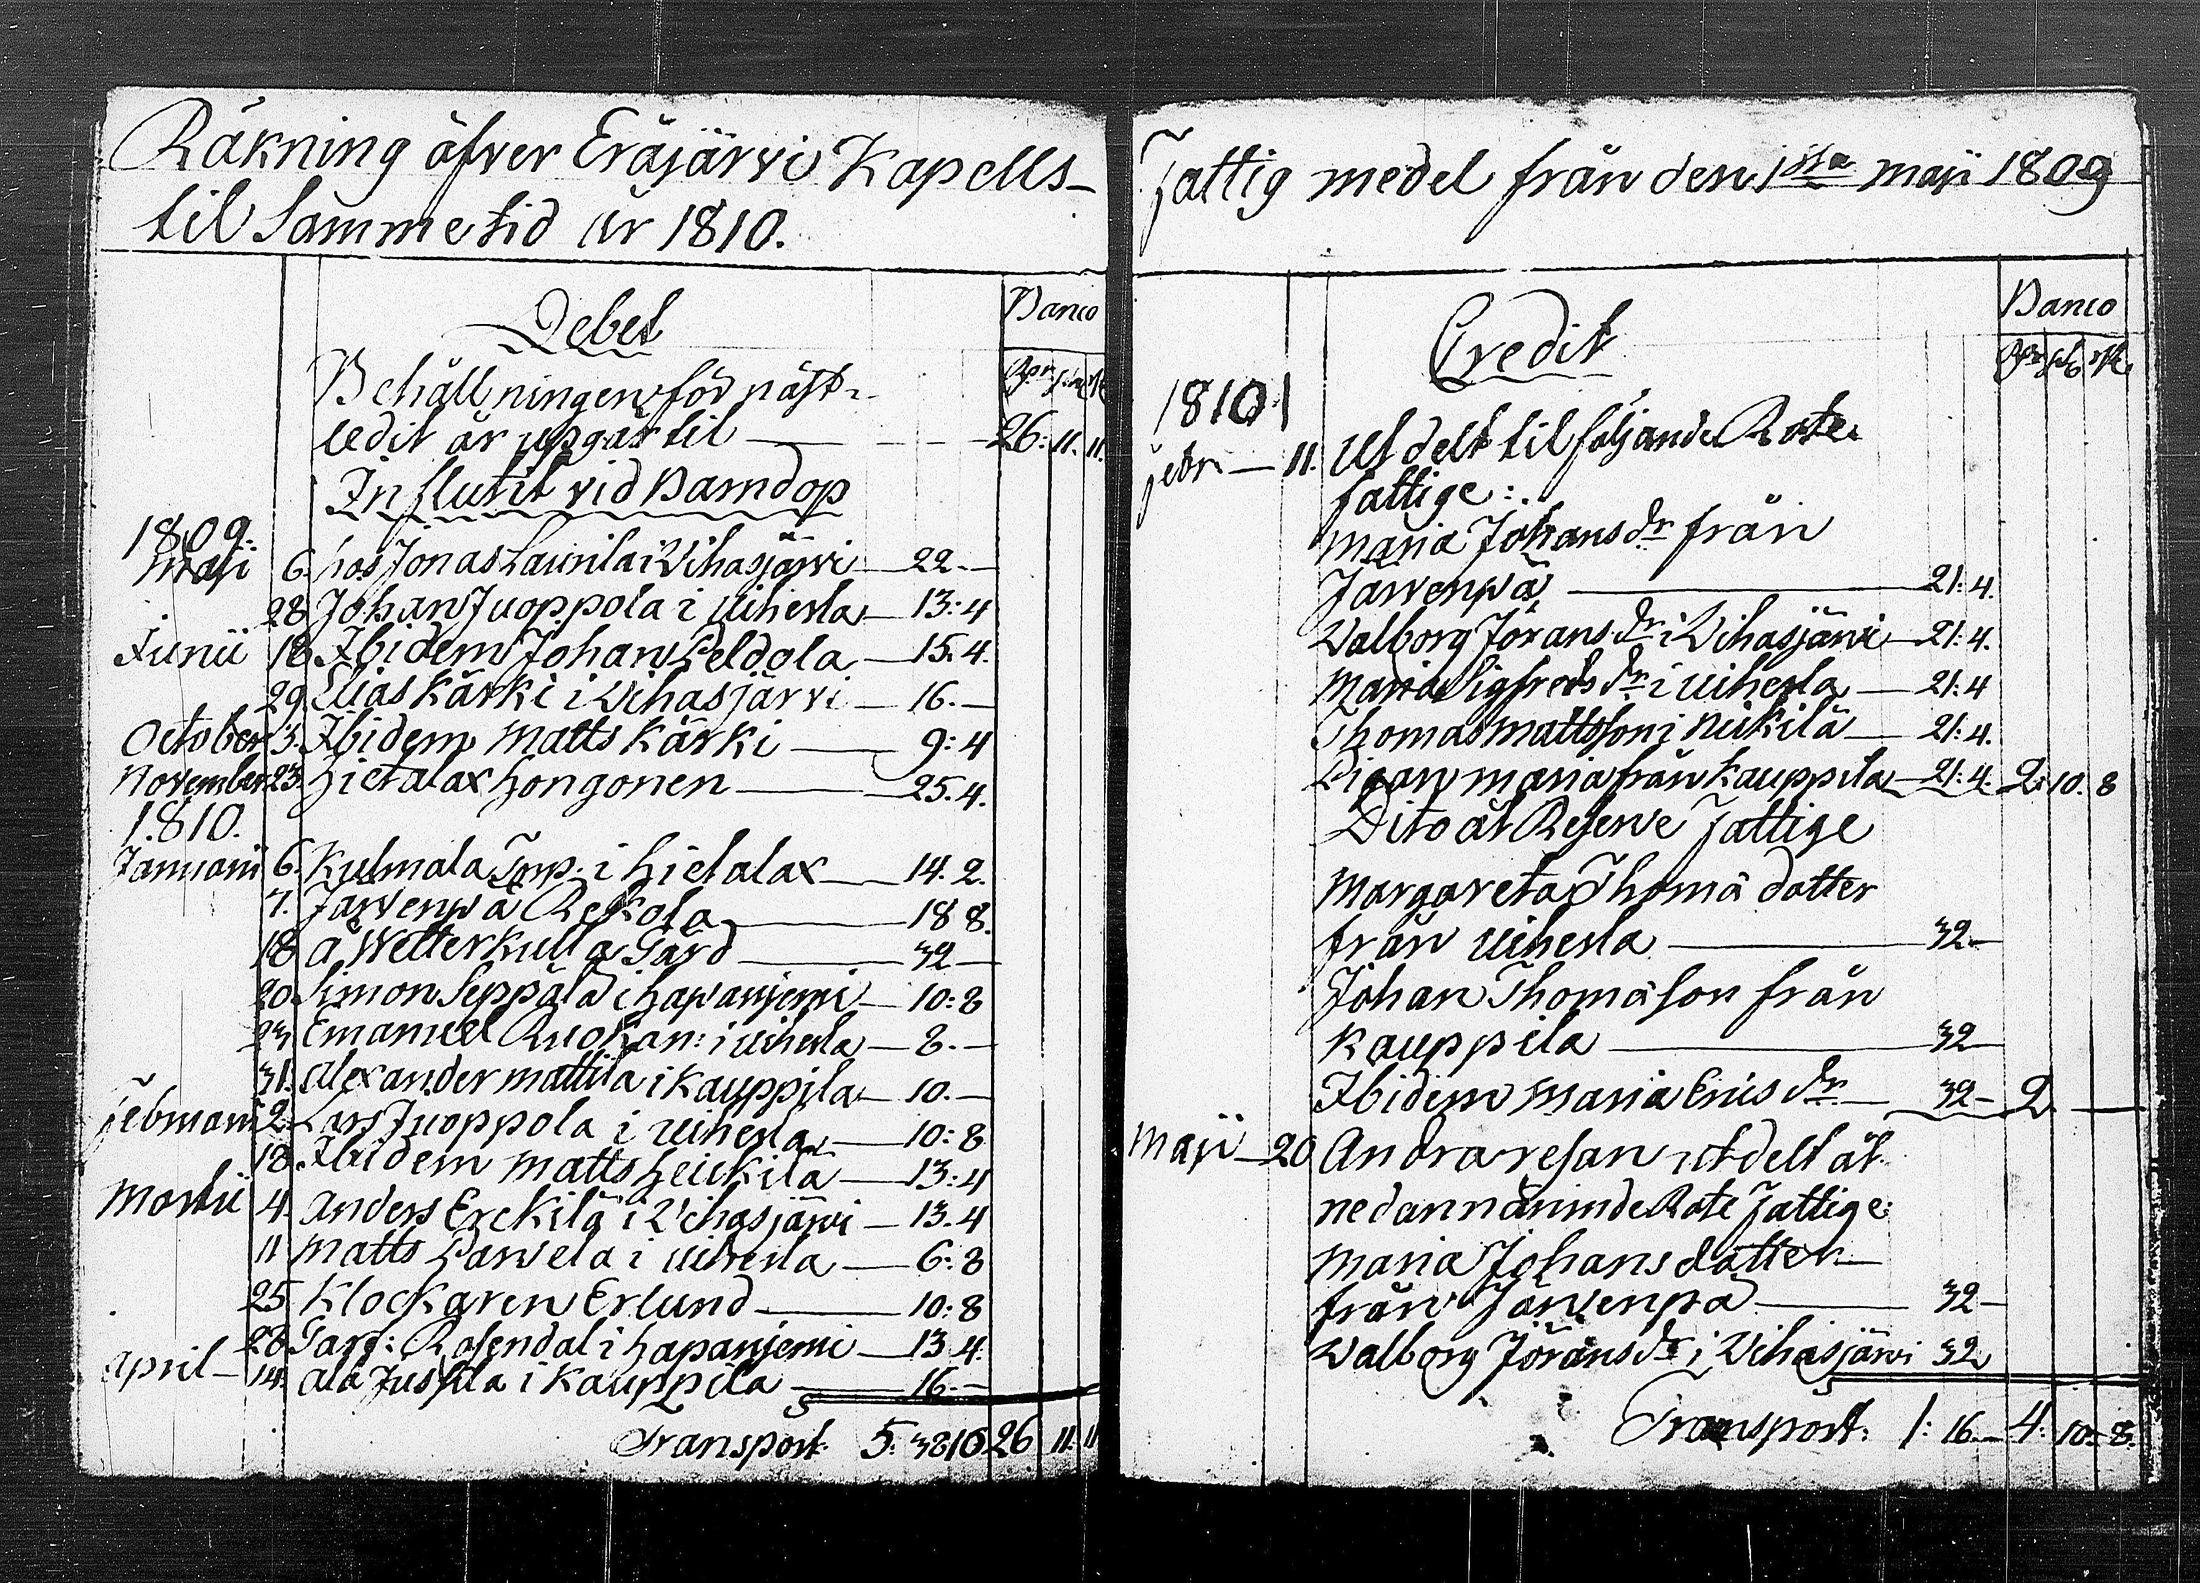 Räkning öfver Eräjärvi Kapells-
til Samme tid år 1810.
Debet
Banco
Behållningen för näst-
ledit år upgår til — 26: 11. 11.
Influtit vid Barndop
1809.
Maji 6. hos Jonas Laurila i Vihasjärvi — 22. —
28 Johan Juoppola i Uiherla — 13: 4
Junii 18 Ibidem Johan Peldola — 15. 4.
29 Elias Kärki i Vihasjärvi — 16. —
October 3. Ibidem Matts Kärki — 9: 4
November 23. Hietalax Hongonen — 25. 4.
1810.
Januarii 6. Kulmala Torp: i Hietalax — 14. 2.
7. Järvenpä Rekola — 18 8.
18 å Wetterkulla Gård — 32 —
20. Simon Seppälä i Hapanjemi — 10: 8
23 Emanuel Ruokan: i Uiherla — 8. —
31. Alexander Mattila i Kauppila — 10. —
Februarii 2. Lars Juoppola i Uiherla — 10: 8
18. Ibidem Matts Heickilä — 13: 4
Martii 4. Anders Erckilä i Vihasjärvi — 13. 4
11 Matts Parvela i Uiherla — 6: 8
25 Klockaren Erlund — 10: 8
28 Garf: Rosendal i Hapanjemi — 13. 4.
April — 14. Ala Jussila i Kauppila — 16. —
Transport 5: 38 10 26 11. 11
Fattig medel från den 1sta Maji 1809
Credit
Banco
1810
Febr — 11. Utdelt til följande Rote
fattige:
Maria Johansdr från
Järvenpä — 21: 4.
Valborg Jöransdr i Vihasjärvi — 21: 4.
Maria Sigfredsdr i Uiherla — 21: 4
Thomas Mattsson i Nikilä — 21: 4.
Pigan Maria från Kauppila — 21: 4. 2: 10. 8
Dito åt Reserve Fattige
Margareta Thomä dotter
från Uiherla — 32 —
Johan Thomäson från
Kauppila — 32
Ibidem Maria Ericsdr — 32 — 2. —
Maji — 20 Andra resan utdelt åt
nedannämnde Rote Fattige:
Maria Johansdotter
från Järvenpä — 32 —
Valborg Jöransdr i Vihasjärvi 32
Transport. 1: 16. — 4: 10. 8.